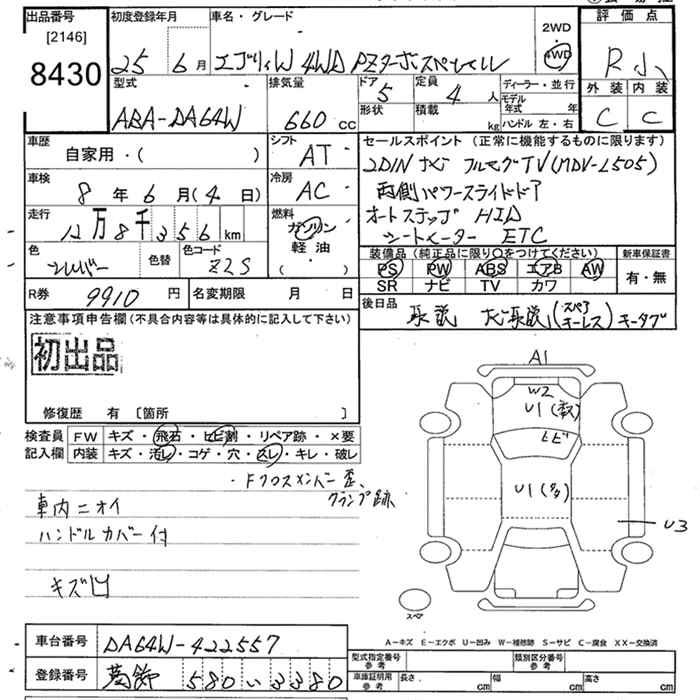 出品番号
[2146]
8430
初度登録年月
25年6月
車名・グレード
エブリィW 4WD PZターボスペシャル
2WD
4WD
評価点
R小
外装 内装
C C
型式
ABA-DA64W
排気量
660 cc
ドア
5
形状
定員
4人
積載
kg
ディーラー・並行
モデル年式 年
ハンドル 左・右
車歴
自家用・( )
シフト
AT
車検
8年6月(4日)
冷房
AC
走行
12万8千356km
燃料
ガソリン
軽油
( )
色
シルバー
色替
色コード
Z2S
R券 9910円
名変期限 月 日
セールスポイント (正常に機能するものに限ります)
2DINナビ フルセグTV(MDV-L505)
両側パワースライドドア
オートステップ HID
シートヒーター ETC
装備品(純正品に限り○をつけてください)
PS PW ABS エアB AW
SR ナビ TV カワ
新車保証書
有・無
後日品
取説 ナビ取説(スペアキーレス)キータグ
注意事項申告欄(不具合内容等は具体的に記入して下さい)
初出品
修復歴 有 [箇所 ]
検査員
記入欄
FW キズ・飛石・ヒビ割・リペア跡・×要
内装 キズ・汚レ・コゲ・穴・スレ・キレ・破レ
・Fクロスメンバー歪、
クランプ跡
車内ニオイ
ハンドルカバー付
キズ凹
A1
W2
U1
ヒビ
U1(多)
U3
スペア
A-キズ E-エクボ U-凹み W-補修跡 S-サビ C-腐食 XX-交換済
車台番号 DA64W-422557
登録番号 580 い 3380
型式指定番号 参考
類別区分番号 参考
車庫証明用 参考
長さ cm 幅 cm 高さ cm